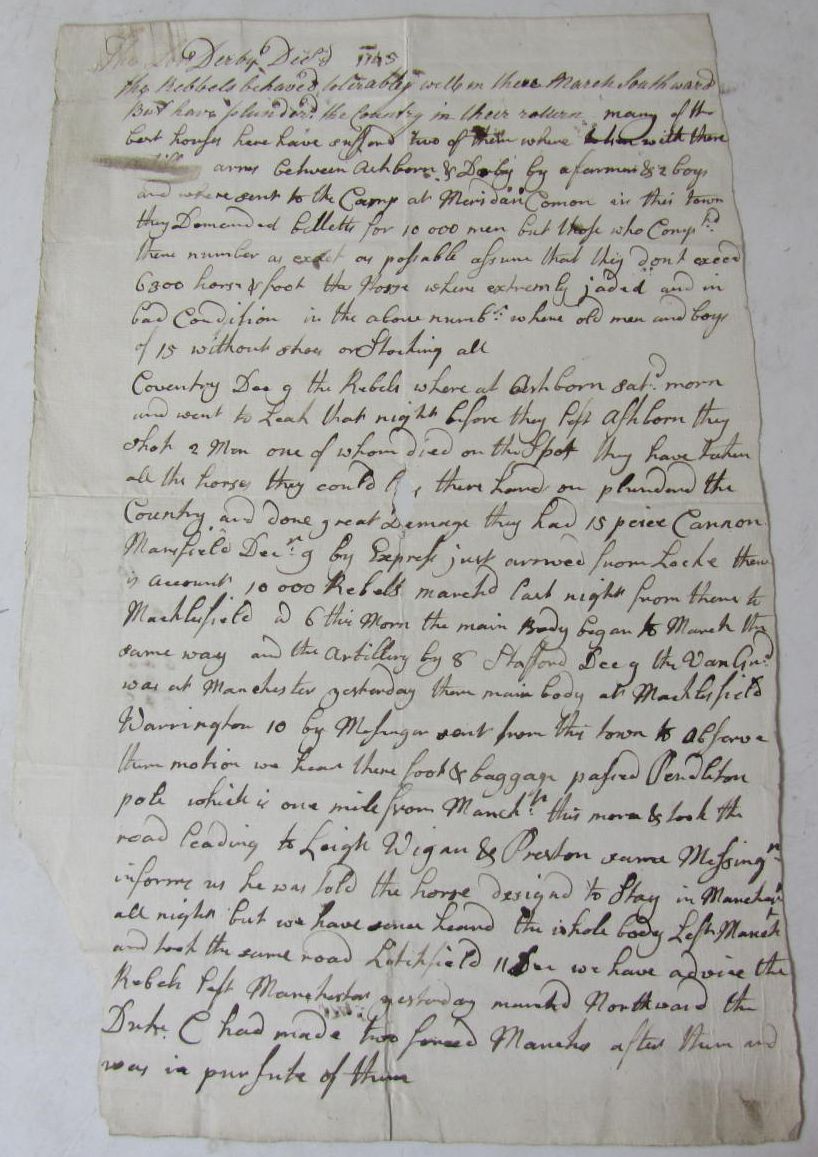 Derby Decd 1745
the Rebbels behaved tolerably well in there March Southward
But have plunderd the Country in their return many of the
best houses here have sufferd two of them where taken with there
arms between Ashborn & Derby by a farmer & 2 boys
and where sent to the Camp at Meridan Comon in this town
they Demanded billetts for 10 000 men but those who Compd
there number as exact as possable assure that they dont exceed
6300 horse & foot the Horse where extremly jaded and in
bad Condition in the above numbr where old men and boys
of 15 without shoes or Stocking all
Coventry Dec 9 the Rebels where at Ashborn satd morn
and went to Leak that night before they left Ashborn they
shot 2 Men one of whom died on the Spot they have taken
all the horses they could there hands on plunderd the
Country and done great Demage they had 15 peice Cannon
Mansfield Decr 9 by Express just arrived from Leeke there
is account 10 000 Rebels marchd last night from thence to
Macklsfield at 6 this Morn the main Body began to March the
same way and the Artillery by 8 Stafford Dec 9 the Van Grd
was at Manchester yesterday there main body at Macklsfield
Warrington 10 by Mesinger sent from this town to observe
there motion we hear there foot & baggage passed Pendleton
pole which is one mile from Manchr this morn & took the
road leading to Leigh Wigan & Preston same Messingr
informs us he was told the horse designd to Stay in Manchesr
all night but we have since heard the whole body Left Manchr
and took the same road Litchfield 11 Dec we have advice the
Rebels left Manchester yesterday marchd Northward the
Duke C had made two forced Marchs after them and
was in pursute of them